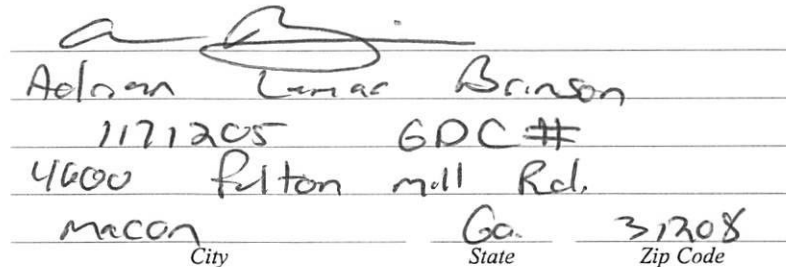 Adrian Lamar Brinson
1171205 GDC #
4600 fulton mill Rd.
Macon Ga. 31208
City State Zip Code